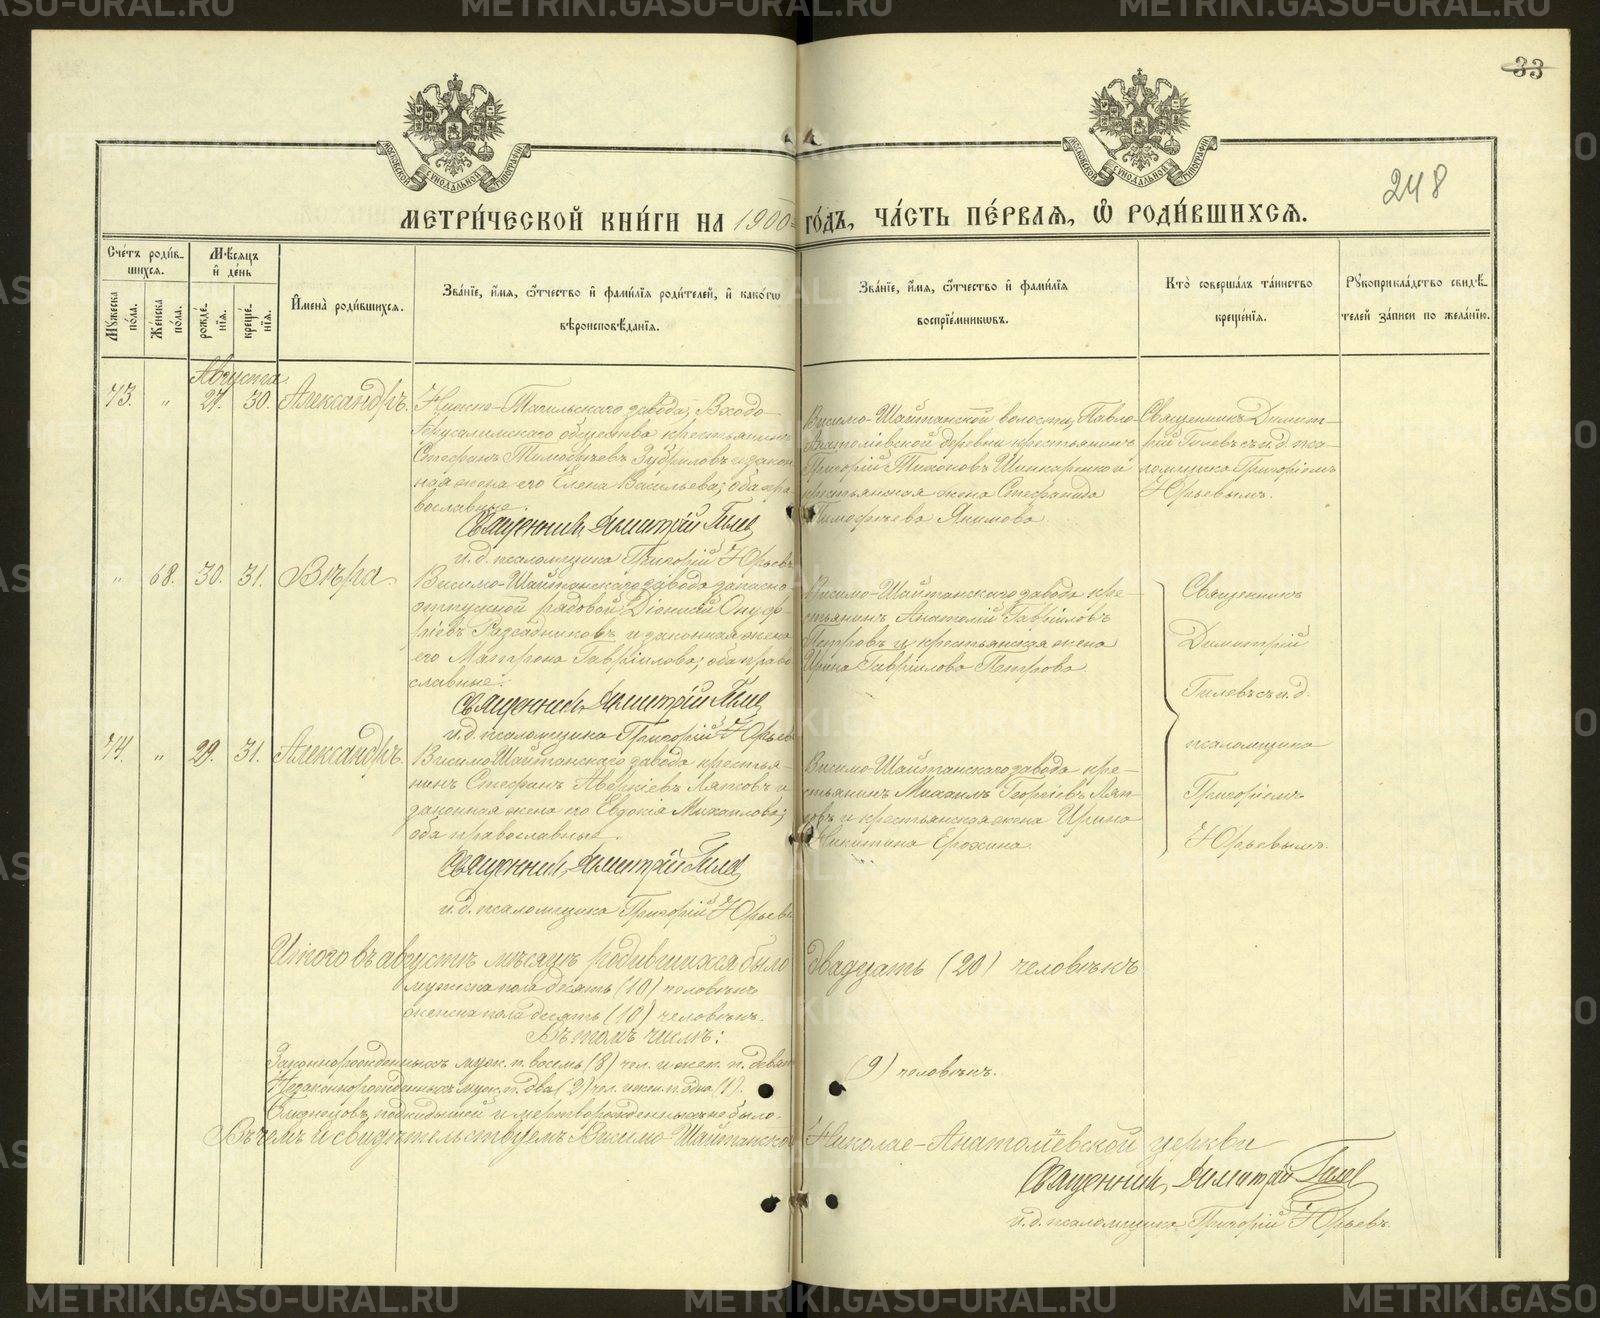 METRIKI.GASO-URAL.RU
33
248
МОСКОВСКОЙ СѴНОДАЛЬНОЙ ТИПОГРАФІИ
МОСКОВСКОЙ СѴНОДАЛЬНОЙ ТИПОГРАФІИ
МЕТРИ́ЧЕСКОЙ КНИ́ГИ НА 1900 ГО́ДЪ, ЧА́СТЬ ПЕ́РВАЯ, Ѽ РОДИ́ВШИХСЯ.
Сче́тъ роди́в-
шихся.
Мѣ́сяцъ
и҆ де́нь
Му́жеска
по́ла.
Же́нска
по́ла.
рожде́-
нїя.
креще́-
нїя.
И҆мена̀ роди́вшихся.
Зва́нїе, и҆́мя, ѻ҆́тчество и҆ фами́лїя роди́телей, и҆ како́гѡ
вѣроисповѣ́данїя.
Зва́нїе, и҆́мя, ѻ҆́тчество и҆ фами́лїя
воспрїе́мникѡвъ.
Кто̀ соверша́лъ та́инство
креще́нїя.
Рукоприкла́дство свидѣ́-
телей за́писи по жела́нїю.
Августа
73. " 27. 30. Александръ.
Нижне-Тагильскаго завода, Входо-
Іерусалимскаго общества крестьянинъ
Стефанъ Тимофѣевъ Зубриловъ и закон
ная жена его Елена Васильева; оба пра
вославные.
Священникъ Димитрій Гилев
и. д. псаломщика Григорій Юрьевъ
Висимо-Шайтанской волости, Павло-
Анатолiевской деревни крестьянинъ
Григорій Тихоновъ Шинкаренко и
крестьянская жена Стефанида
Тимофѣева Якимова.
Священникъ Димит-
рій Гилевъ съ и. д. пса-
ломщика Григоріемъ
Юрьевымъ.
" 68. 30. 31. Вѣра.
Висимо-Шайтанскаго завода запасно-
отпускной рядовой Діонисій Онуф-
ріевъ Разсадниковъ и законная жена
его Матрона Гавріилова; оба право-
славные.
Священникъ Димитрій Гилев
и. д. псаломщика Григорій Юрьев
Висимо-Шайтанскаго завода кре-
стьянинъ Анатолій Гавріиловъ
Петровъ и крестьянская жена
Ирина Гавріилова Петрова.
Священникъ
Димитрій
Гилевъ съ и. д.
псаломщика
Григоріемъ
Юрьевымъ.
74. " 29. 31. Александръ.
Висимо-Шайтанскаго завода крестья-
нинъ Стефанъ Аверкіевъ Ляповъ и
законная жена его Евдокія Михаилова;
оба православные.
Священникъ Димитрій Гилев
и. д. псаломщика Григорій Юрьевъ
Висимо-Шайтанскаго завода кре-
стьянинъ Михаилъ Георгіевъ Ляп-
овъ и крестьянская жена Ирина
Никитина Ерохина.
Итого въ августѣ мѣсяцѣ родившихся было двадцать (20) человѣкъ
мужска пола десять (10) человѣкъ
женска пола десять (10) человѣкъ.
Въ томъ числѣ:
Законнорожденныхъ муж. п. восемь (8) чел. и жен. п. девять (9) человѣкъ.
Незаконнорожденныхъ муж. п. два (2) чел. и жен. п. одна (1).
Близнецовъ, подкидышей и мертворожденныхъ не было.
Въ чемъ и свидѣтельствуемъ Висимо-Шайтанской Николае-Анатоліевской церкви
Священникъ Димитрій Гилев
и. д. псаломщика Григорій Юрьевъ.